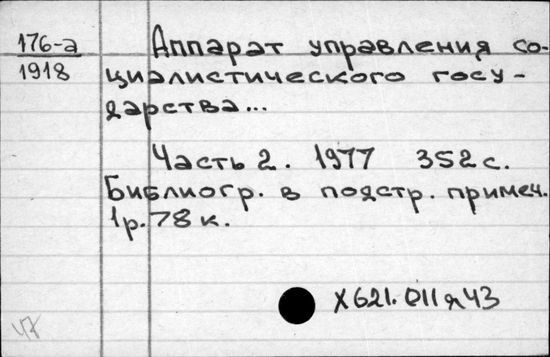 176-а
1918
Аппарат управления со-
циалистического госу-
дарства...
Часть 2. 1977 352 с.
Библиогр. в подстр. примеч.
1р. 78 к.
Х621.011я43
47